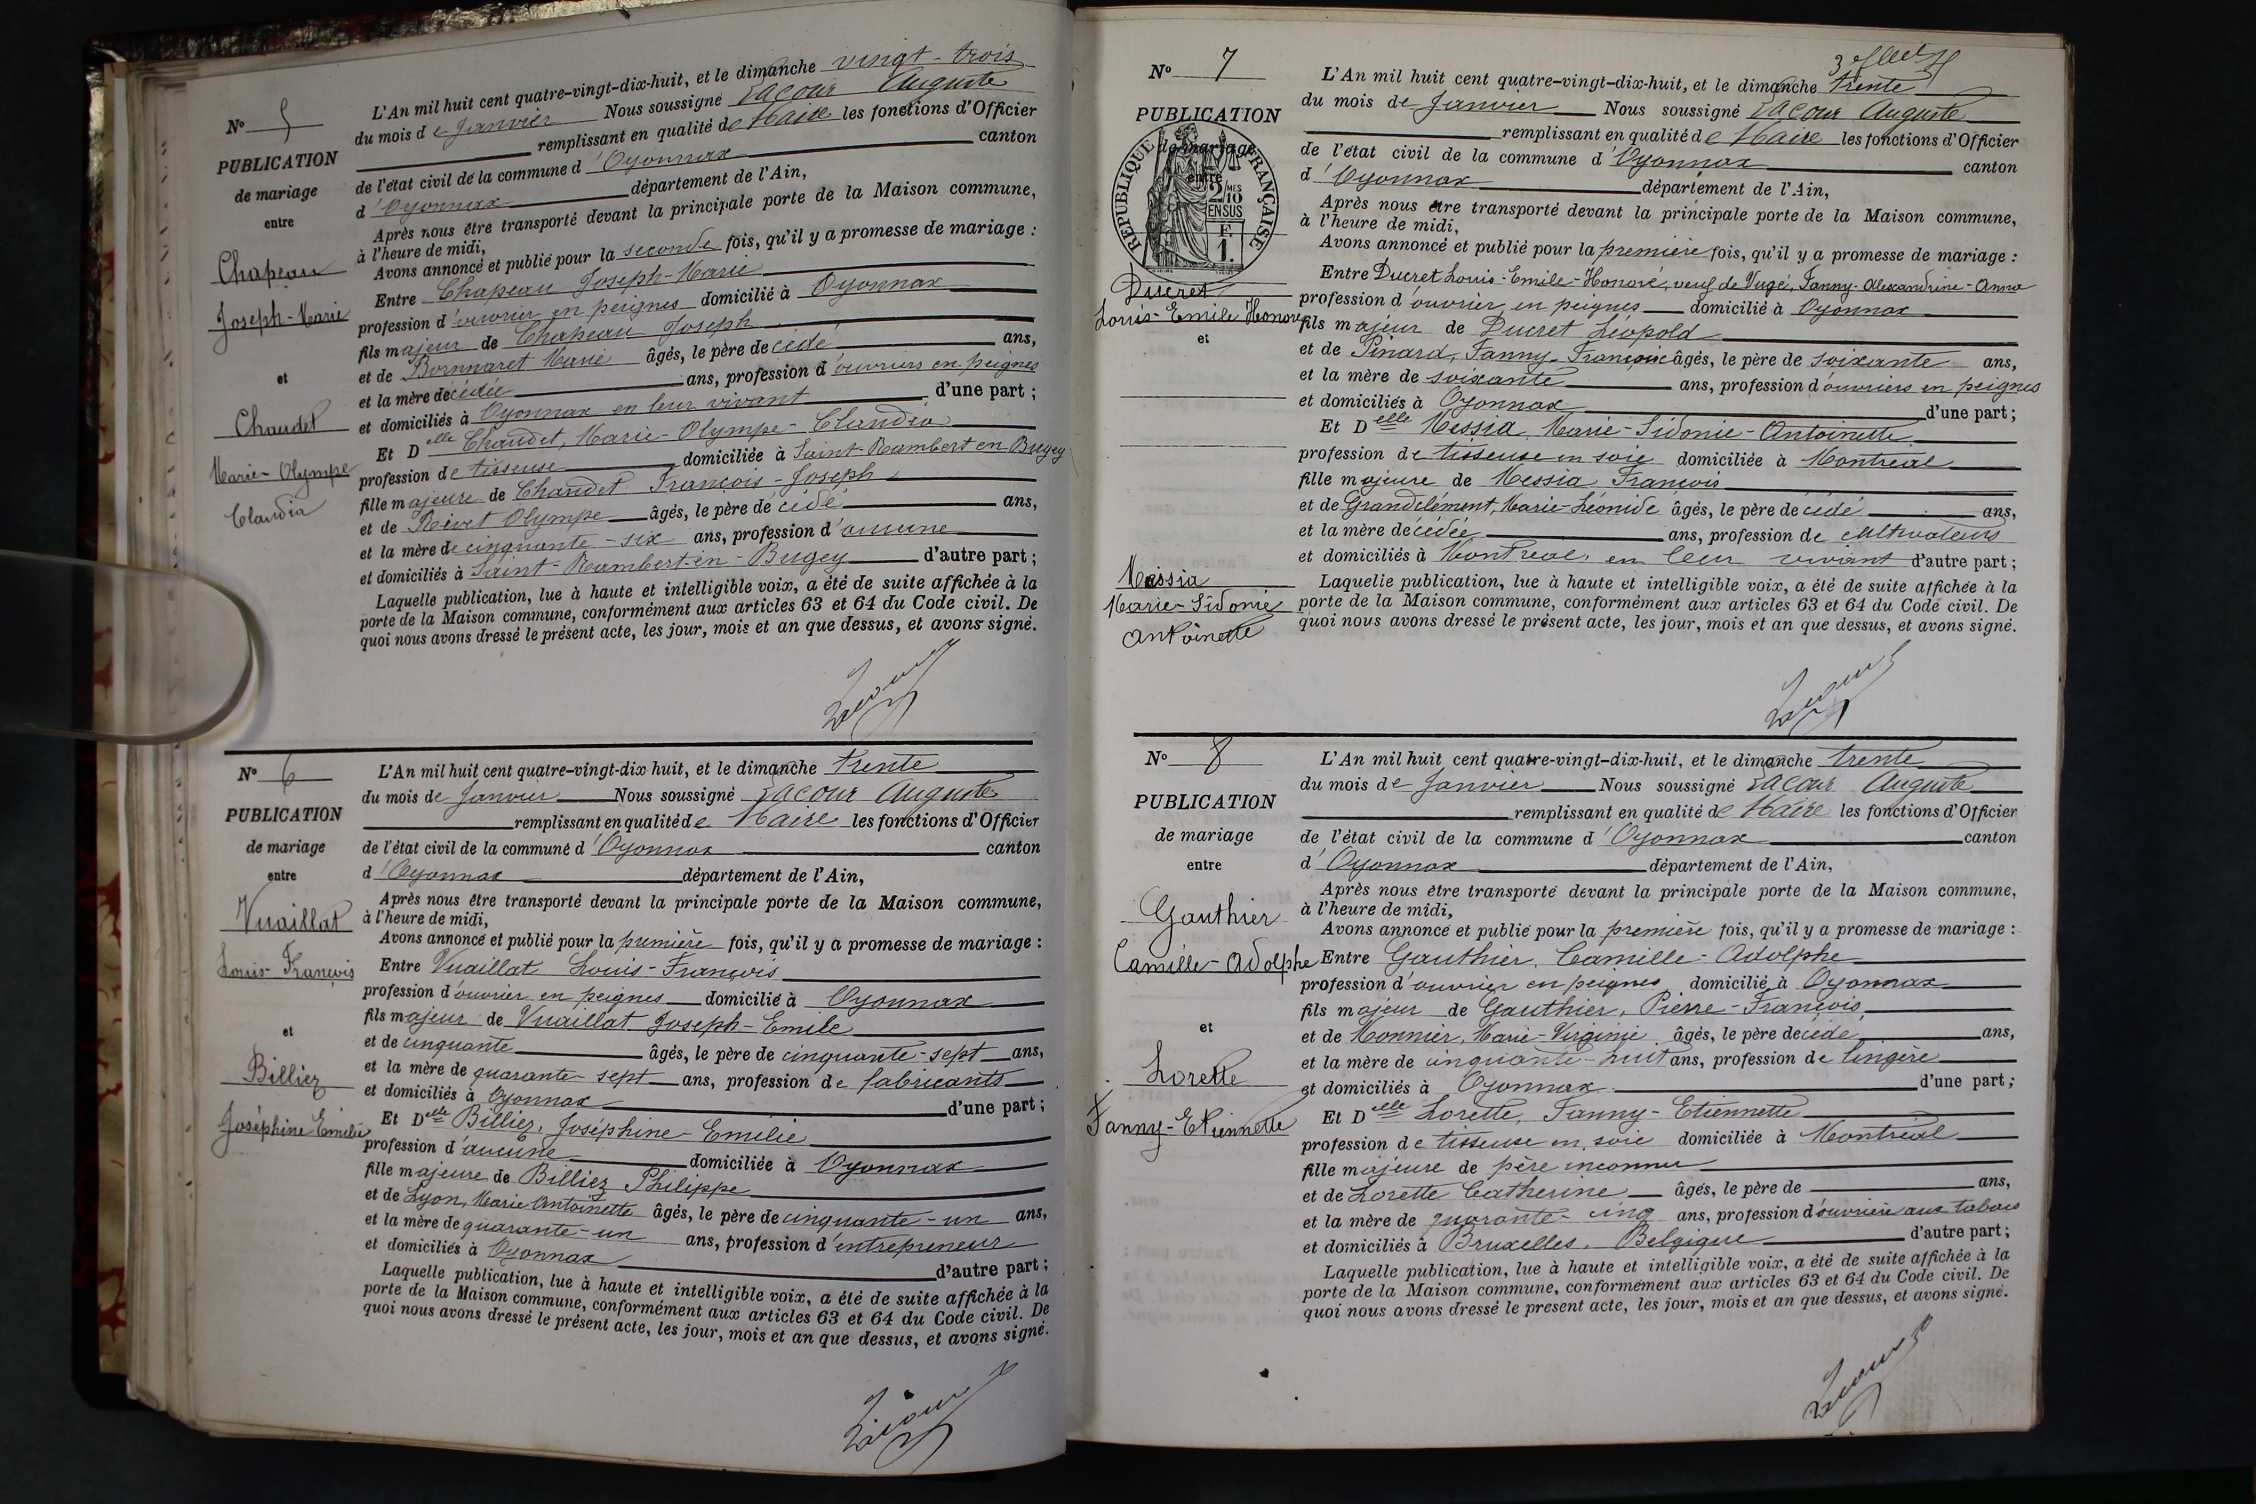 N° 5
PUBLICATION
de mariage
entre
Chapeau
Joseph-Marie
et
Chaudet
Marie-Olympe
Claudia
L'An mil huit cent quatre-vingt-dix-huit, et le dimanche vingt-trois
du mois de Janvier Nous soussigné Lacour Auguste
remplissant en qualité de Maire les fonctions d'Officier
de l'état civil de la commune d'Oyonnax canton
d'Oyonnax département de l'Ain,
Après nous être transporté devant la principale porte de la Maison commune,
à l'heure de midi,
Avons annoncé et publié pour la seconde fois, qu'il y a promesse de mariage :
Entre Chapeau Joseph-Marie
profession d'ouvrier en peignes domicilié à Oyonnax
fils majeur de Chapeau Joseph
et de Bornnaret Marie âgés, le père de cédé ans,
et la mère décédée ans, profession d'ouvriers en peignes
et domiciliés à Oyonnax en leur vivant d'une part ;
Et Delle Chaudet, Marie-Olympe-Claudia
profession de tisseuse domiciliée à Saint-Rambert en Bugey
fille majeure de Chaudet François-Joseph
et de Rivet Olympe âgés, le père de cédé ans,
et la mère de cinquante-six ans, profession d'aucune
et domiciliés à Saint-Rambert-en-Bugey d'autre part ;
Laquelle publication, lue à haute et intelligible voix, a été de suite affichée à la
porte de la Maison commune, conformément aux articles 63 et 64 du Code civil. De
quoi nous avons dressé le présent acte, les jour, mois et an que dessus, et avons signé.
Lacour
N° 6
PUBLICATION
de mariage
entre
Vuaillat
Louis-François
et
Billiez
Joséphine Emilie
L'An mil huit cent quatre-vingt-dix huit, et le dimanche trente
du mois de Janvier Nous soussigné Lacour Auguste
remplissant en qualité de Maire les fonctions d'Officier
de l'état civil de la commune d'Oyonnax canton
d'Oyonnax département de l'Ain,
Après nous être transporté devant la principale porte de la Maison commune,
à l'heure de midi,
Avons annoncé et publié pour la première fois, qu'il y a promesse de mariage :
Entre Vuaillat Louis-François
profession d'ouvrier en peignes domicilié à Oyonnax
fils majeur de Vuaillat Joseph-Emile
et de cinquante âgés, le père de cinquante-sept ans,
et la mère de quarante-sept ans, profession de fabricants
et domiciliés à Oyonnax d'une part ;
Et Delle Billiez, Joséphine-Emilie
profession d'aucune domiciliée à Oyonnax
fille majeure de Billiez Philippe
et de Lyon, Marie Antoinette âgés, le père de cinquante-un ans,
et la mère de quarante-un ans, profession d'entrepreneur
et domiciliés à Oyonnax d'autre part ;
Laquelle publication, lue à haute et intelligible voix, a été de suite affichée à la
porte de la Maison commune, conformément aux articles 63 et 64 du Code civil. De
quoi nous avons dressé le présent acte, les jour, mois et an que dessus, et avons signé.
Lacour
N° 7
PUBLICATION
de mariage
entre
RÉPUBLIQUE FRANÇAISE
2/10
MES
EN SUS
F.
1.
Ducret
Louis-Emile Honoré
et
Messia
Marie-Sidonie
Antoinette
L'An mil huit cent quatre-vingt-dix-huit, et le dimanche trente
du mois de Janvier Nous soussigné Lacour Auguste
remplissant en qualité de Maire les fonctions d'Officier
de l'état civil de la commune d'Oyonnax canton
d'Oyonnax département de l'Ain,
Après nous être transporté devant la principale porte de la Maison commune,
à l'heure de midi,
Avons annoncé et publié pour la première fois, qu'il y a promesse de mariage :
Entre Ducret Louis-Emile-Honoré, veuf de Vugé, Fanny-Alexandrine-Anna
profession d'ouvrier en peignes domicilié à Oyonnax
fils majeur de Ducret Léopold
et de Pinard, Fanny-Françoise âgés, le père de soixante ans,
et la mère de soixante ans, profession d'ouvriers en peignes
et domiciliés à Oyonnax d'une part ;
Et Delle Messia, Marie-Sidonie-Antoinette
profession de tisseuse en soie domiciliée à Montreal
fille majeure de Messia, François
et de Grandclément, Marie-Léonide âgés, le père de cédé ans,
et la mère décédée ans, profession de cultivateurs
et domiciliés à Montreal, en leur vivant d'autre part ;
Laquelle publication, lue à haute et intelligible voix, a été de suite affichée à la
porte de la Maison commune, conformément aux articles 63 et 64 du Code civil. De
quoi nous avons dressé le présent acte, les jour, mois et an que dessus, et avons signé.
Lacour
N° 8
PUBLICATION
de mariage
entre
Gauthier
Camille-Adolphe
et
Lorette
Fanny-Etiennette
L'An mil huit cent quatre-vingt-dix-huit, et le dimanche trente
du mois de Janvier Nous soussigné Lacour Auguste
remplissant en qualité de Maire les fonctions d'Officier
de l'état civil de la commune d'Oyonnax canton
d'Oyonnax département de l'Ain,
Après nous être transporté devant la principale porte de la Maison commune,
à l'heure de midi,
Avons annoncé et publié pour la première fois, qu'il y a promesse de mariage :
Entre Gauthier, Camille-Adolphe
profession d'ouvrier en peignes domicilié à Oyonnax
fils majeur de Gauthier, Pierre-François
et de Monnier, Marie-Virginie âgés, le père decédé ans,
et la mère de cinquante-huit ans, profession de lingère
et domiciliés à Oyonnax d'une part ;
Et Delle Lorette, Fanny-Etiennette
profession de tisseuse en soie domiciliée à Montréal
fille majeure de père inconnu
et de Lorette Catherine âgés, le père de ans,
et la mère de quarante-cinq ans, profession d'ouvrière aux tabacs
et domiciliés à Bruxelles, Belgique d'autre part ;
Laquelle publication, lue à haute et intelligible voix, a été de suite affichée à la
porte de la Maison commune, conformément aux articles 63 et 64 du Code civil. De
quoi nous avons dressé le présent acte, les jour, mois et an que dessus, et avons signé.
Lacour